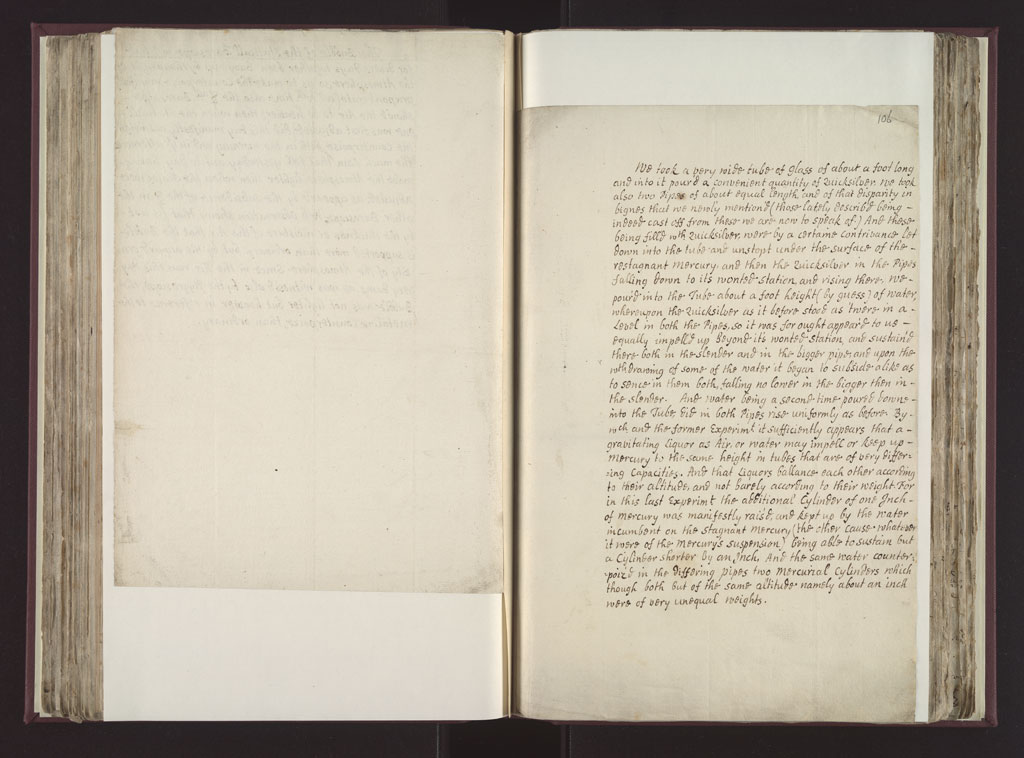 106
We took a very wide tube of Glass of about a foot long
and into it pour'd a convenient quantity of Quicksilver. We took
also two Pipes of about equal length and of that disparity in
bignes that we newly mention'd (those lately describ'd being
indeed cast off from these we are now to speak of.) And these
being fill'd wth Quicksilver, were by a certaine contrivance let
down into the tube and unstopt under the surface of the
restagnant Mercury, and then the Quicksilver in the Pipes
falling down to its wonted station, and rising there, we
pour'd into the Tube about a foot height (by guess) of water,
whereupon the Quicksilver as it before stood as 'twere in a
Level in both the Pipes, so it was for ought appear'd to us
equally impell'd up beyond its wonted station, and sustain'd
there both in the slender and in the bigger pipe; and upon the
wthdrawing of some of the water it began to subside alike as
to sence in them both, falling no lower in the bigger then in
the slender. And water being a second time pour'd downe
into the Tube, did in both Pipes rise uniformly as before. By
wch and the former Experimt it sufficiently appears that a
gravitating Liquor as Air, or water may impell or keep up
Mercury to the same height in tubes that are of very differ-
ing Capacities. And that Liquors ballance each other according
to their altitude, and not barely according to their weight. For
in this last Experimt the additional Cylinder of one Inch
of Mercury was manifestly rais'd, and kept up by the water
incumbent on the stagnant Mercury, (the other cause whatever
it were of the Mercury's suspension) being able to sustain but
a Cylinder shorter by an Inch. And the same water counter-
pois'd in the differing pipes two Mercurial Cylinders which
though both but of the same altitude namely about an inch
were of very unequal weights.